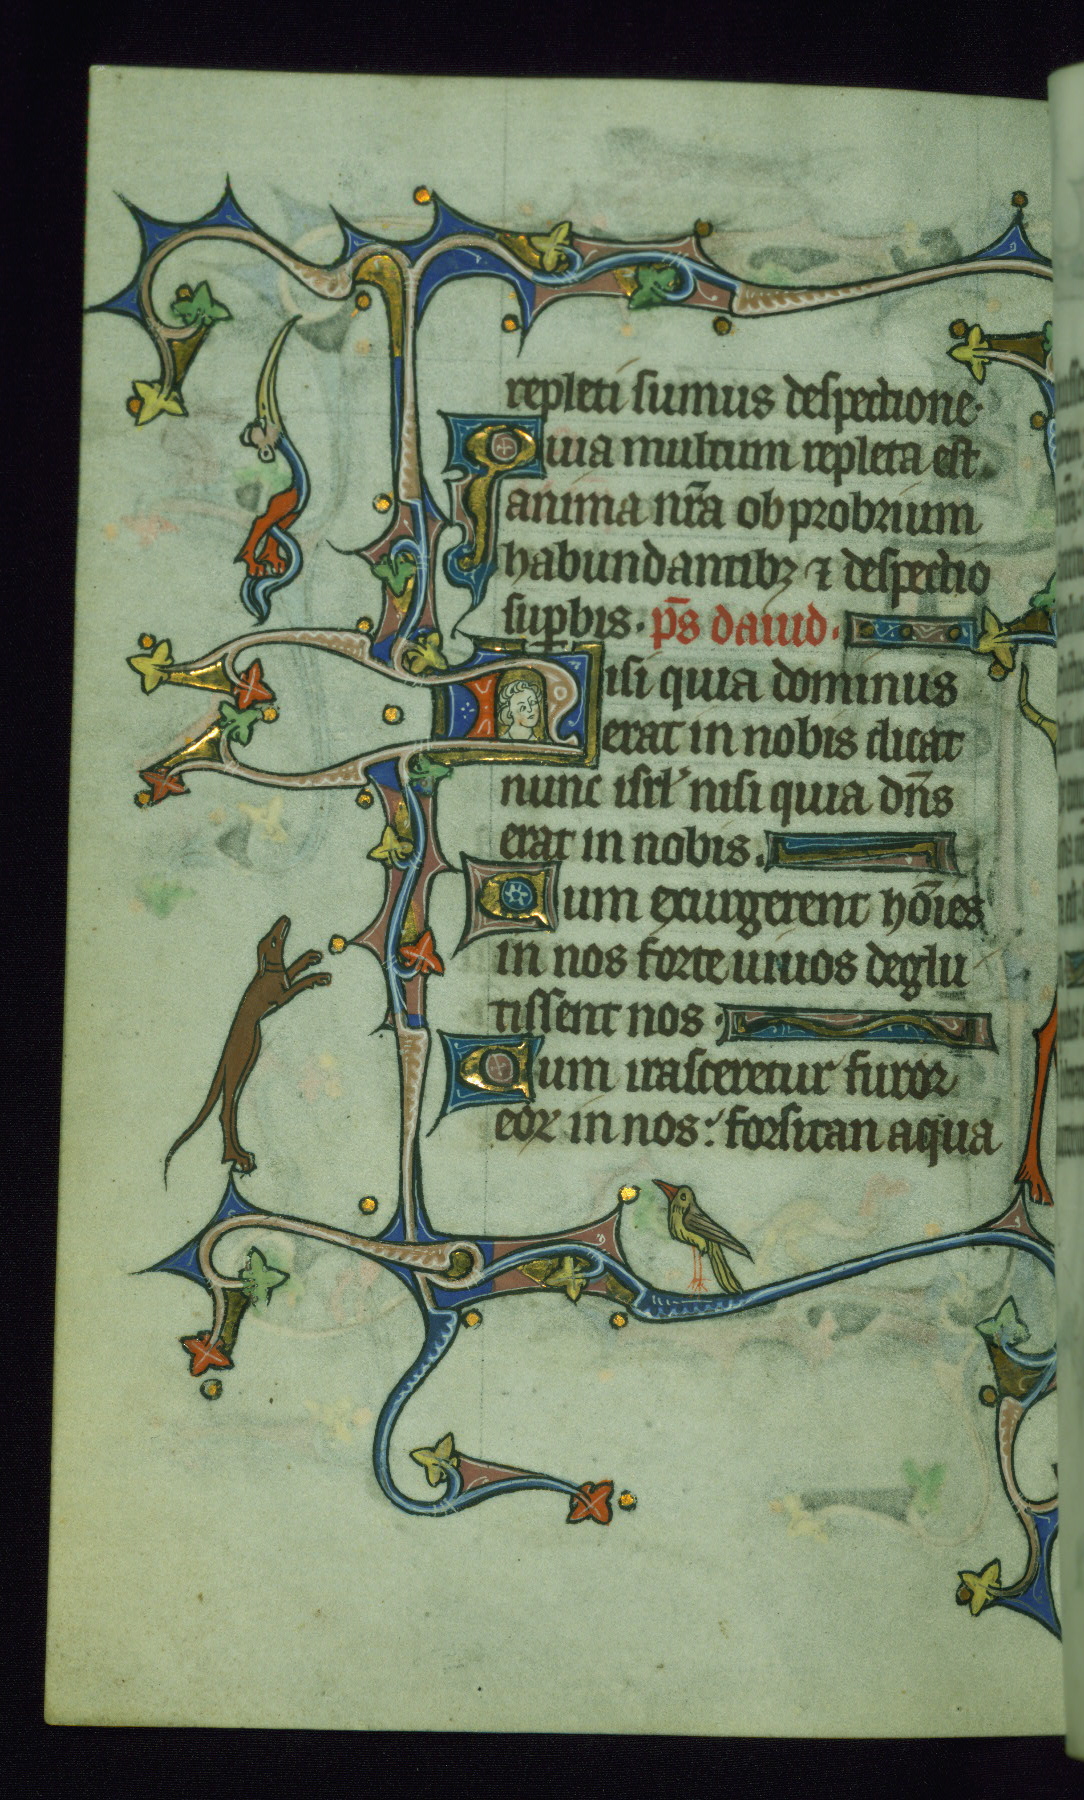 repleti sumus despectione.
Quia multum repleta est
anima nr̄a obprobrium
habundantibꝫ ⁊ despectio
suꝑbis. p̄s dauid.
Nisi quia dominus
erat in nobis dicat
nunc isrl' nisi quia dn̄s
erat in nobis.
Cum exurgerent hōies
in nos forte uiuos deglu
tissent nos.
Cum irasceretur furor
eoꝝ in nos: forsitan aqua